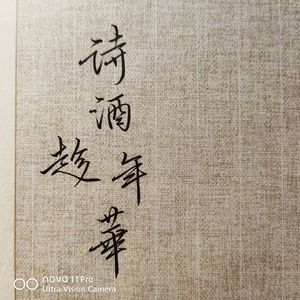 诗酒
趁年
華
nova 11 Pro
Ultra Vision Camera